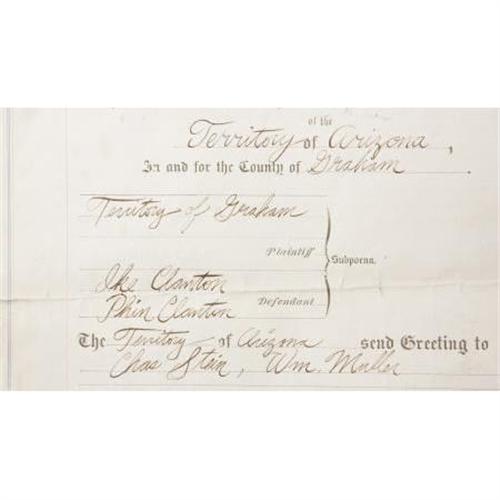 of the
Territory of Arizona,
In and for the County of Graham
Territory of Graham
Plaintiff
Subpoena.
Ike Clanton
Phin Clanton Defendant
The Territory of Arizona send Greeting to
Chas Stein, Wm. Muller